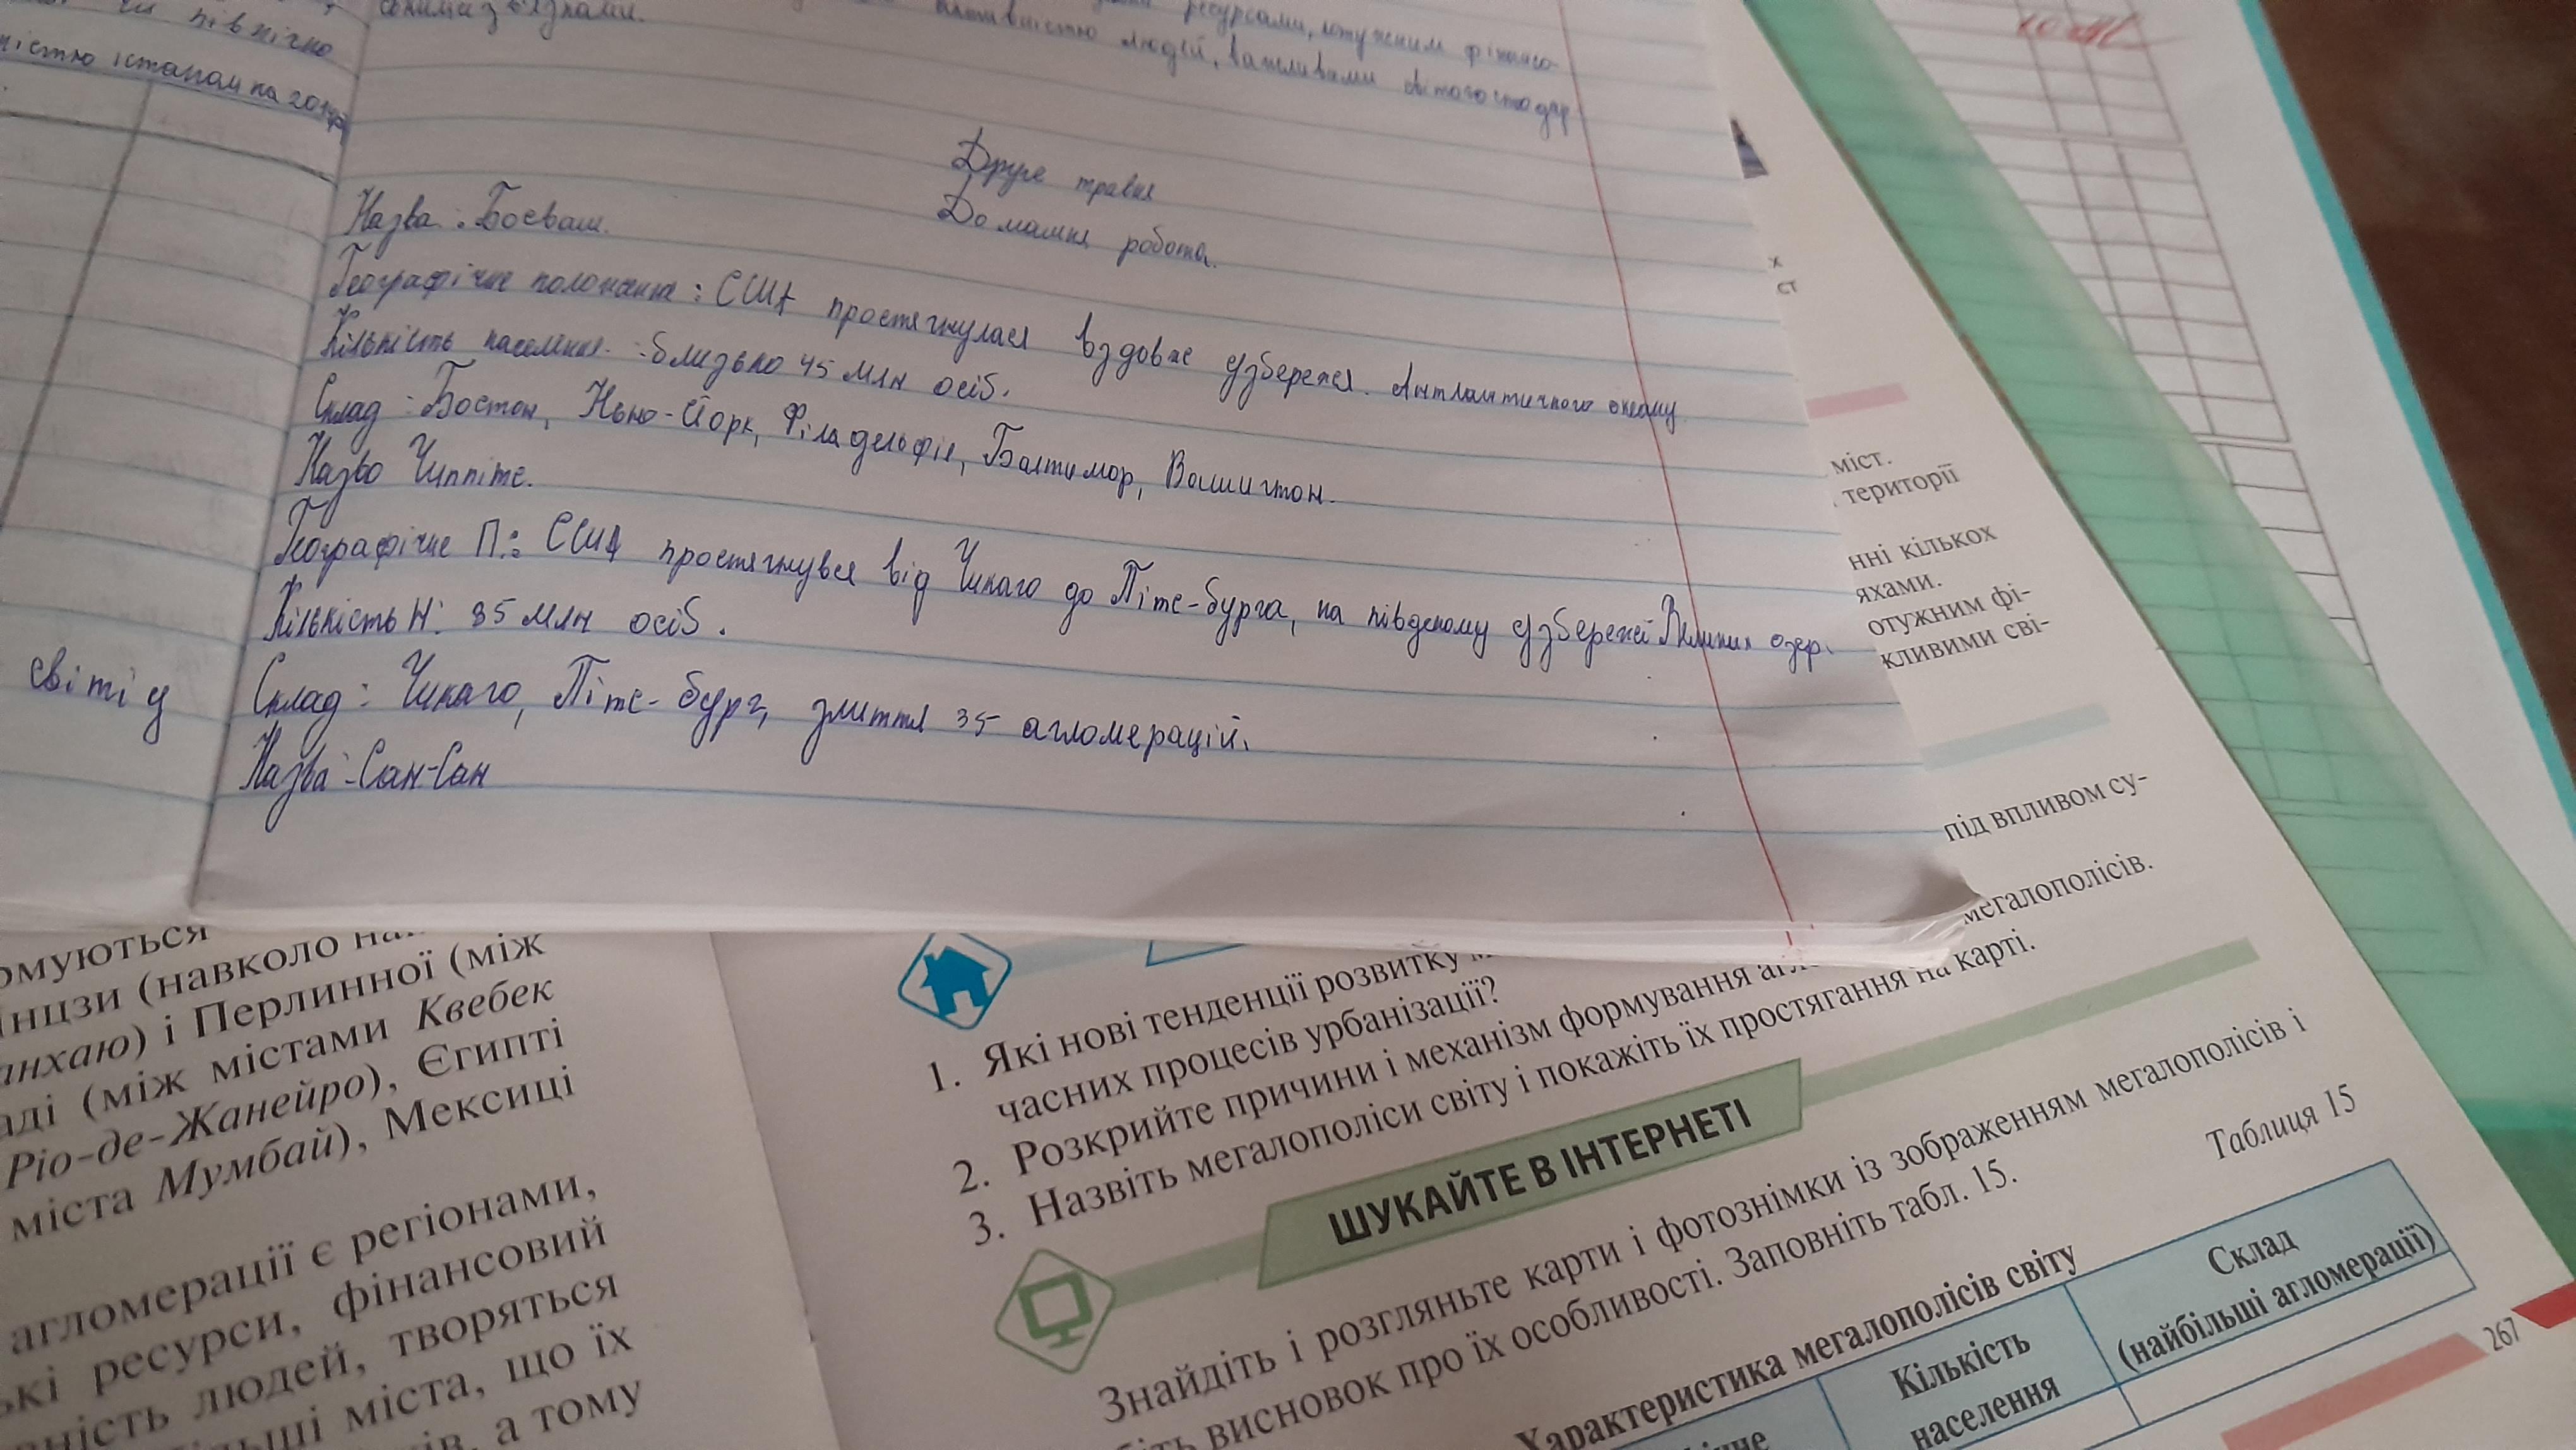 ністю і станом на 2014р
ресурсами, потужним фінансо-
людей, важливими світогосподар-
Друге травня
Домашня робота.
Назва : Босваш.
Географічне положення : США простягнулася вздовж узбережя. Антлантичного океану
Кількість населення. : близько 45 млн осіб.
Склад : Бостон, Нью-Йорк, Філадельфія, Балтимор, Вашигтон.
Назва Чиппітс.
Географічне П.: США простягнувся від Чикаго до Пітс-бурга, на південому узбережжі Великих озер.
Кількість Н: 35 млн осіб.
Склад : Чикаго, Пітс-бург, злиття 35 агломерацій.
Назва : Сан-Сан
світі у
міст.
території
нні кількох
яхами.
отужним фі-
кливими сві-
під впливом су-
мегалополісів.
рмуються
нцзи (навколо
анхаю) і Перлинної (між
аді (між містами Квебек
Ріо-де-Жанейро), Єгипті
міста Мумбай), Мексиці
агломерації є регіонами,
ькі ресурси, фінансовий
вність людей, творяться
льші міста, що їх
а тому
1. Які нові тенденції розвитку
часних процесів урбанізації?
2. Розкрийте причини і механізм формування
3. Назвіть мегалополіси світу і покажіть їх простягання на карті.
ШУКАЙТЕ В ІНТЕРНЕТІ
Знайдіть і розгляньте карти і фотознімки із зображенням мегалополісів і
біть висновок про їх особливості. Заповніть табл. 15.
Таблиця 15
Характеристика мегалополісів світу
Кількість
населення
Склад
(найбільші агломерації)
267